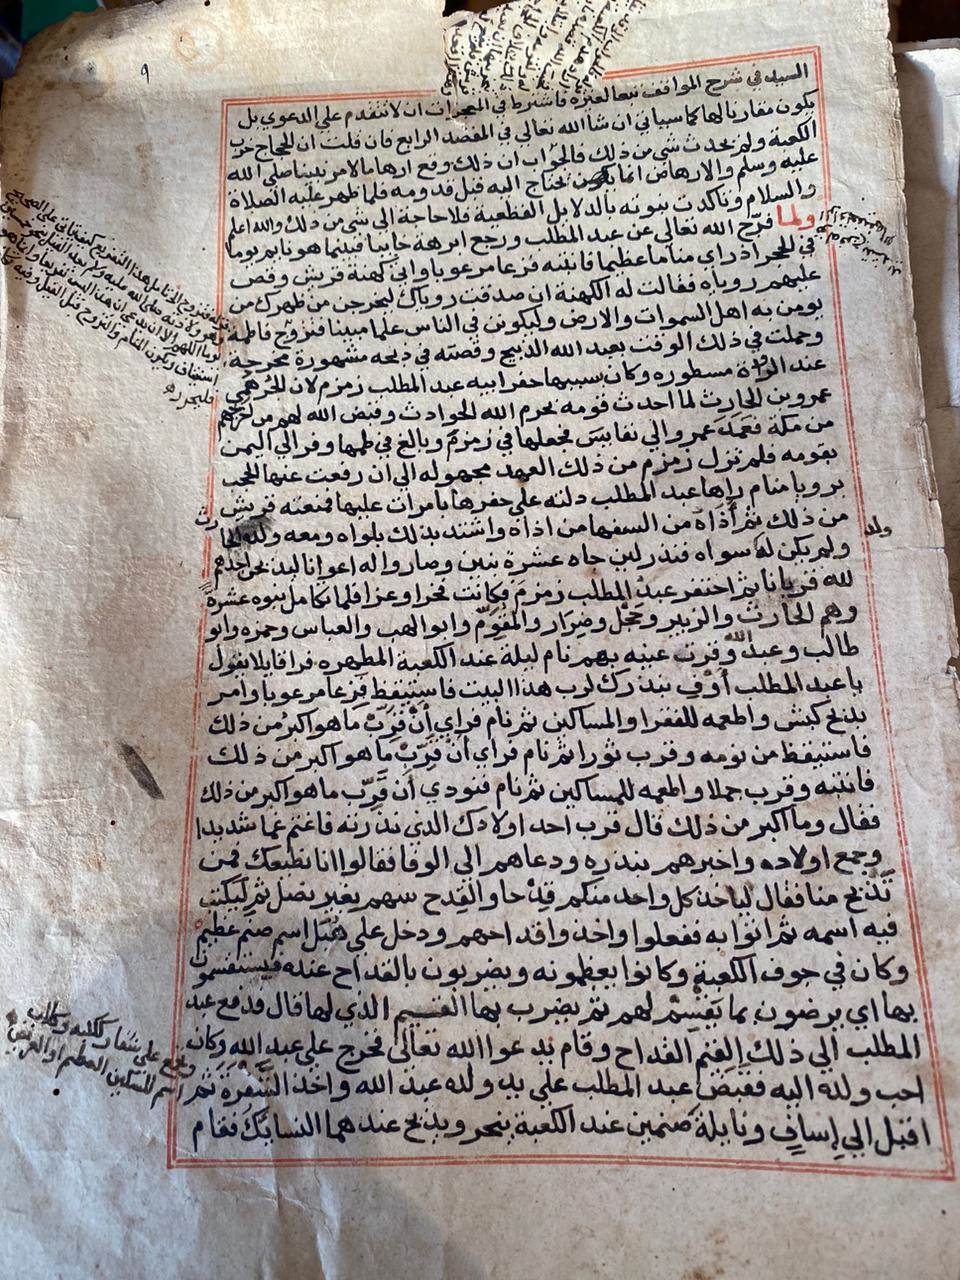 ٩
السيد في شرح المواقف تبعا لغيره فاشترط في المعجزات ان لا تتقدم علي الدعوي بل
يكون مقارنا لها كما سياتي ان شا الله تعالي في المقصد الرابع فان قلت ان الحجاج خرب
الكعبة ولم يحدث شي من ذلك فالجواب ان ذلك وقع ارهاصا لامر نبينا صلي الله
عليه وسلم والارهاص انما يكون يحتاج اليه قبل قدومه فلما ظهر عليه الصلاة
والسلام وتاكدت نبوته بالدلايل القطعية فلا حاجة الي شي من ذلك والله اعلم
ولما فرج الله تعالي عن عبد المطلب ورجع ابرهة خايبا فبينما هو نايم يوما
في الحجر اذ راي مناما عظيما فانتبه فزعا مرعوبا واتي كهنة قريش وقص
عليهم روياه فقالت له الكهنة ان صدقت روياك ليخرجن من ظهرك من
يومن به اهل السموات والارض وليكونن في الناس علما مبينا فتزوج فاطمة
وحملت في ذلك الوقت بعبد الله الذبيح وقصته في ذبحه مشهورة مخرجة
عند الرواة مسطوره وكان سببها حفر ابيه عبد المطلب زمزم لان الجرهمي
عمرو بن الحارث لما احدث قومه بحرم الله الحوادث وقيض الله لهم من اخرجهم
من مكة فعمد عمرو الي نفايس فجعلها في زمزم وبالغ في طمها وفر الي اليمن
بقومه فلم تزل زمزم من ذلك العهد مجهوله الي ان رفعت عنها الحجب
برويا منام راها عبد المطلب دلته علي حفرها بامرات عليها فمنعته قريش
من ذلك ثم أذاه من السفها من اذاه واشتد بذلك بلواه ومعه ولده الحارث
ولم يكن له سواه فنذر لين جاه عشرة بنين وصاروا له اعوانا ليذبحن احدهم
لله قربانا ثم احتفر عبد المطلب زمزم فكانت فخرا وعزا فلما تكامل بنوه عشرة
وهم الحارث والزبير وحجل وضرار والمقوم وابو لهب والعباس وحمزه وابو
طالب وعبد الله وقرت عينه بهم نام ليلة عند الكعبة المطهره فراي قايلا يقول
يا عبد المطلب أوف بنذرك لرب هذا البيت فاستيقظ فزعا مرعوبا وامر
بذبح كبش واطعمه للفقرا والمساكين ثم نام فراي أن قرب ما هو اكبر من ذلك
فاستيقظ من نومه وقرب ثورا ثم نام فراي أن قرب ما هو اكبر من ذلك
فانتبه وقرب جملا واطعمه للمساكين ثم نام فنودي أن قرب ما هو اكبر من ذلك
فقال وما اكبر من ذلك قال قرب احد اولادك الذي نذرته فاغتم غما شديدا
وجمع اولاده واخبرهم بنذره ودعاهم الي الوفا فقالوا انا نطيعك فمن
تذبح منا فقال لياخذ كل واحد منكم قدحا والقدح سهم بغير نصل ثم ليكتب
فيه اسمه ثم اتوا به ففعلوا واخذ قداحهم ودخل علي هبل اسم صنم عظيم
وكان في جوف الكعبة وكانوا يعظمونه ويضربون بالقداح عنده فيستقسمون
بها اي يرضون بما يقسم لهم ثم يضرب بها القيم الذي لها قال فدفع عبد
المطلب الي ذلك القيم القداح وقام يدعوا الله تعالي فخرج علي عبد الله وكان
احب ولده اليه فقبض عبد المطلب علي يد ولده عبد الله واخذ الشفرة ثم
اقبل الي إساف ونايلة صنمين عند الكعبة ينحر ويذبح عندهما النسايك فقام
ولد